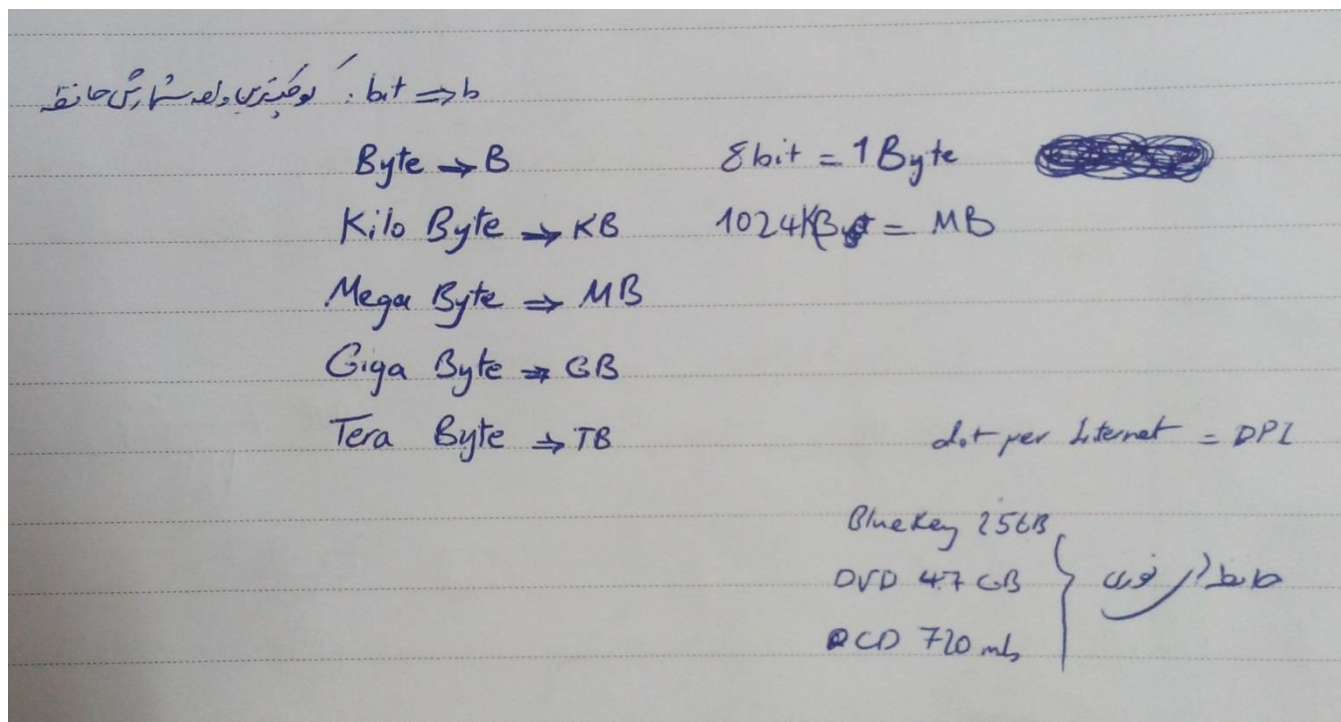 bit ⇒ b : کوچکترین واحد شمارش حافظه
Byte → B 8bit = 1 Byte
Kilo Byte ⇒ KB 1024KB = MB
Mega Byte ⇒ MB
Giga Byte ⇒ GB
Tera Byte ⇒ TB
dot per Internet = DPI
BlueKey 25GB
DVD 4.7 GB
حافظه های نوری
CD 720 mb